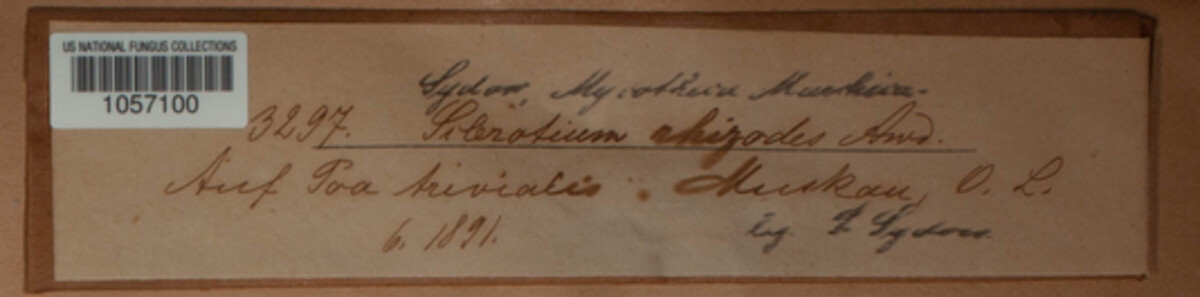 US NATIONAL FUNGUS COLLECTIONS
1057100
Sydow, Mycotheca Marchica.
3297. Sclerotium rhizodes Awd.
Auf Poa trivialis. Muskau, O. L.
6. 1891.
leg. P Sydow.